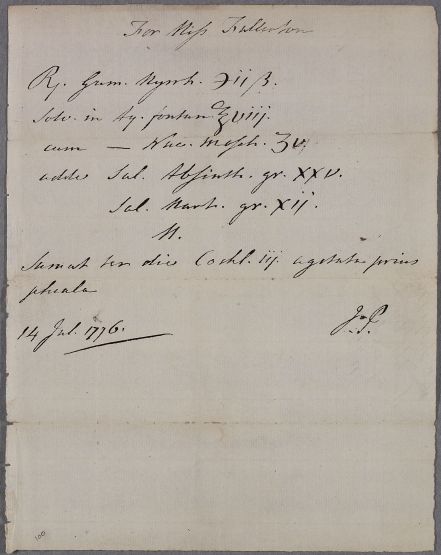 For Miss Fullerton
Rx. Gum. Myrrh. ℈iiß.
Solv. in Aq. fontan ℥viij.
cum — Nuc. Mosch. ʒv.
adde Sal. Absinth. gr. XXV.
Sal. Mart. gr. XII.
M.
Sumat ter die Cochl. iij agitata prius
phiala
14 Jul. 1776.
100